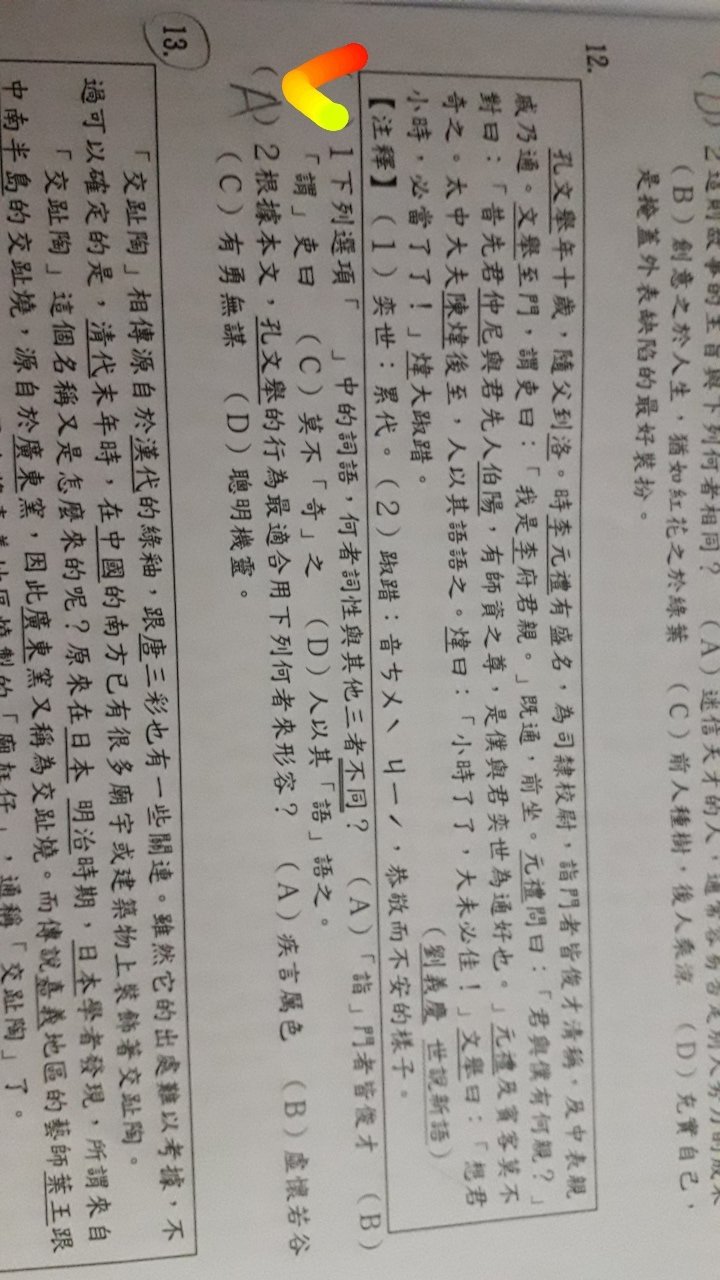 (D) 2 這則故事的主旨與下列何者相同？ (A) 迷信天才的人，通常容易否定別人努力的成果
(B) 創意之於人生，猶如紅花之於綠葉 (C) 前人種樹，後人乘涼 (D) 充實自己，
是掩蓋外表缺陷的最好裝扮。
12.
孔文舉年十歲，隨父到洛。時李元禮有盛名，為司隸校尉，詣門者皆俊才清稱，及中表親
戚乃通。文舉至門，謂吏曰：「我是李府君親。」既通，前坐。元禮問曰：「君與僕有何親？」
對曰：「昔先君仲尼與君先人伯陽，有師資之尊，是僕與君奕世為通好也。」元禮及賓客莫不
奇之。太中大夫陳煒後至，人以其語語之。煒曰：「小時了了，大未必佳！」文舉曰：「想君
小時，必當了了！」煒大踧踖。 (劉義慶 世說新語)
【注釋】(1) 奕世：累代。(2) 踧踖：音ㄘㄨˋ ㄐㄧˊ，恭敬而不安的樣子。
1 下列選項「 」中的詞語，何者詞性與其他三者不同？ (A)「詣」門者皆俊才 (B)
「謂」吏曰 (C) 莫不「奇」之 (D) 人以其「語」語之。
(A) 2 根據本文，孔文舉的行為最適合用下列何者來形容？ (A) 疾言厲色 (B) 虛懷若谷
(C) 有勇無謀 (D) 聰明機靈。
13.
「交趾陶」相傳源自於漢代的綠釉，跟唐三彩也有一些關連。雖然它的出處難以考據，不
過可以確定的是，清代末年時，在中國的南方已有很多廟宇或建築物上裝飾著交趾陶。
「交趾陶」這個名稱又是怎麼來的呢？原來在日本 明治時期，日本學者發現，所謂來自
中南半島的交趾燒，源自於廣東窯，因此廣東窯又稱為交趾燒。而傳說嘉義地區的藝師葉王跟
地區燒製的「廟尪仔」，通稱「交趾陶」了。